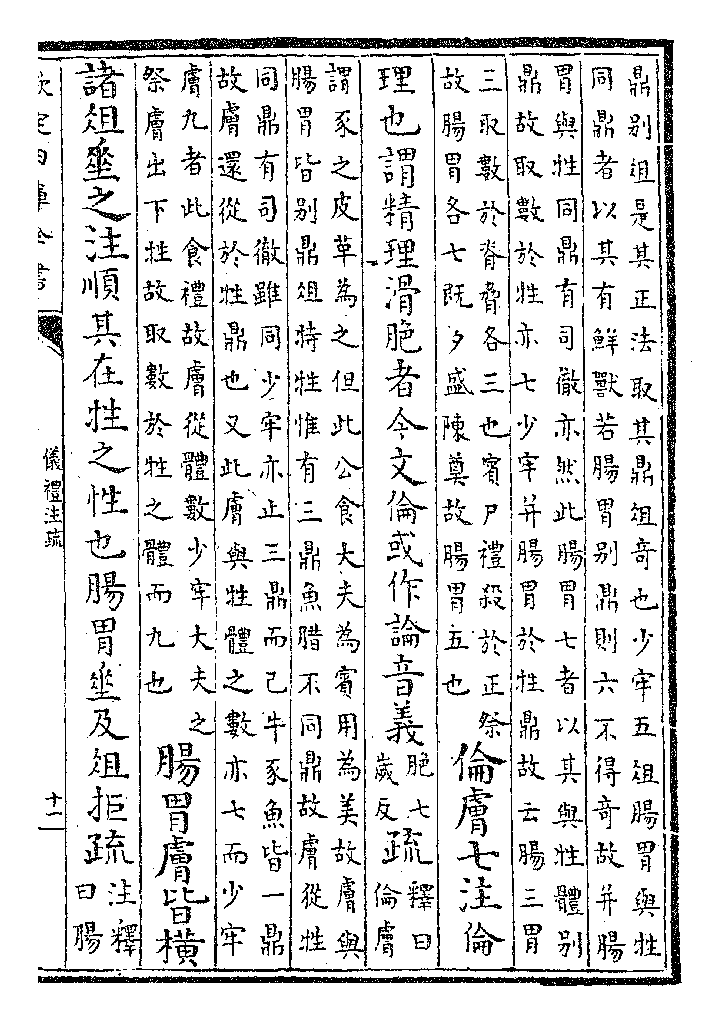 鼎别俎是其正法取其鼎俎竒也少牢五俎腸胃與牲
同鼎者以其有鮮獸若腸胃别鼎則六不得竒故并腸
胃與牲同鼎有司徹亦然此腸胃七者以其與牲體别
鼎故取數於牲亦七少牢并腸胃於牲鼎故云腸三胃
三取數於脊脅各三也賓尸禮殺於正祭
故腸胃各七既夕盛陳奠故腸胃五也
倫膚七注倫
理也謂精理滑脆者今文倫或作論音義
脆七
歲反
疏
釋曰
倫膚
謂豕之皮革為之但此公食大夫為賓用為美故膚與
腸胃皆别鼎俎特牲惟有三鼎魚腊不同鼎故膚從牲
同鼎有司徹雖同少牢亦止三鼎而已牛豕魚皆一鼎
故膚還從於牲鼎也又此膚與牲體之數亦七而少牢
膚九者此食禮故膚從體數少牢大夫之
祭膚出下牲故取數於牲之體而九也
腸胃膚皆横
諸俎垂之注順其在牲之性也腸胃垂及俎拒疏
注釋
曰腸
欽定四庫全書
儀禮注疏
十一